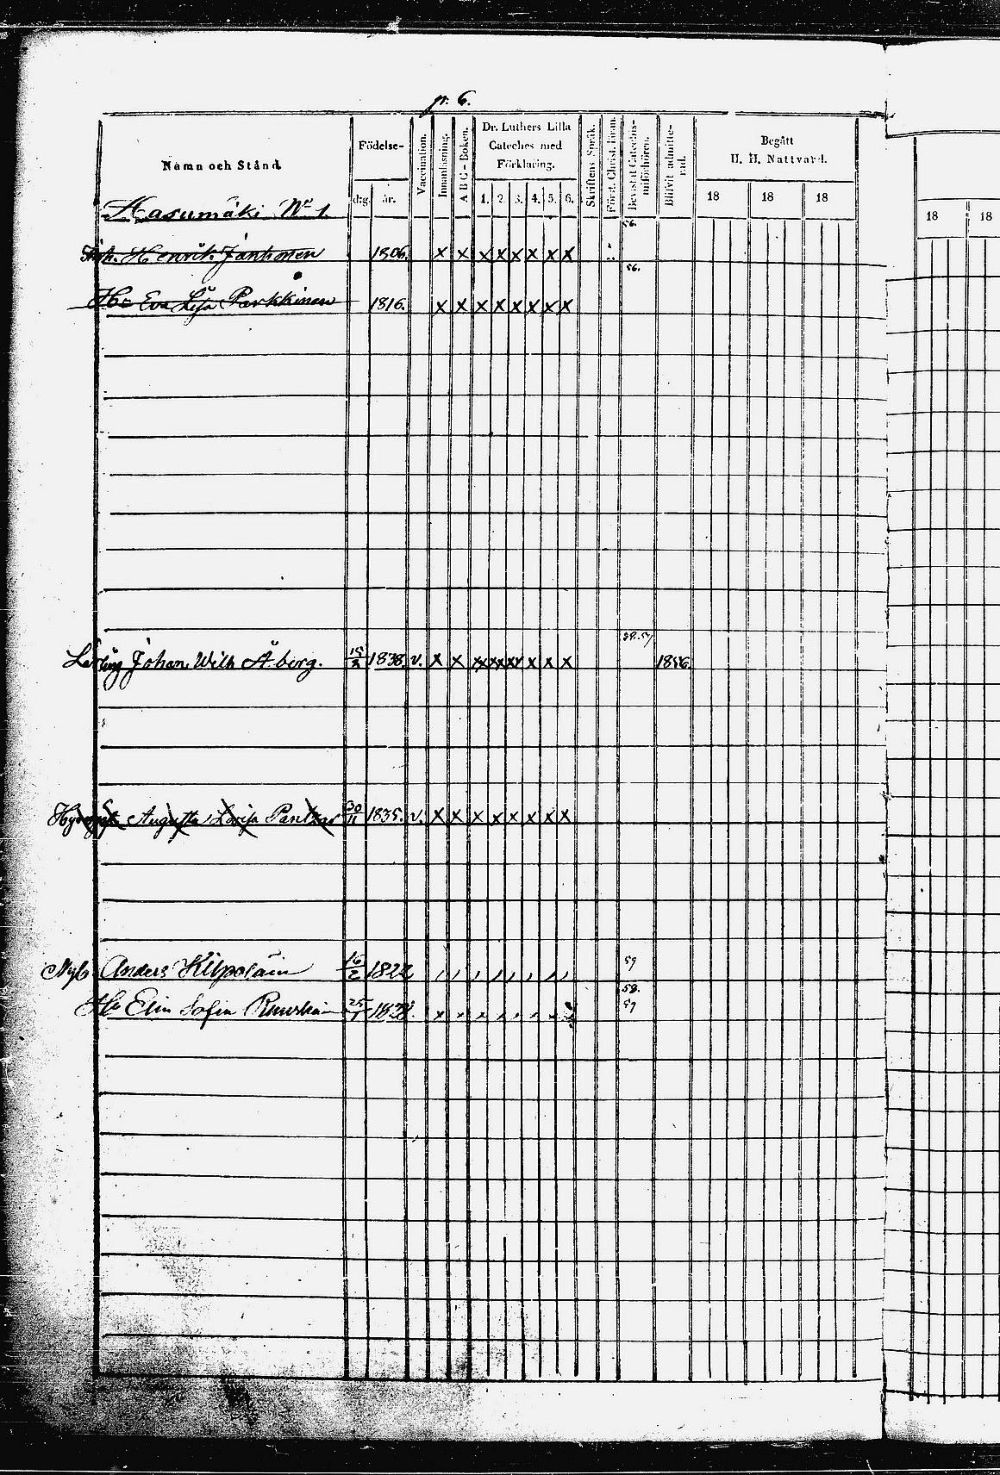 p. 6.
Namn och Stånd.
Födelse-
dtg.
år.
Vaccination.
Innanläsning.
A B C-Boken.
Dr. Luthers Lilla
Cateches med
Förklaring.
1. 2. 3. 4. 5. 6.
Skriftens Språk.
Bevistat Catechis-
miförhören.
Blifvit admitte-
rad.
Begått
H. H. Nattvard.
18 18 18
18 18
Hasumäki No 1.
56.
Henrik Janhonen 1806. x x x x x x x x
56.
Hu Eva Lisa Parkkinen 1816. x x x x x x x x
Lärling Johan Wilh Åberg. 1838. v. x x x x x x x x 1856.
Augusta Lovisa Pantzar 30/11 1835. v. x x x x x x x x
Anders Kilpoläin 16/2 1822 59
58.
Hu Elin Sofia 25/1 59